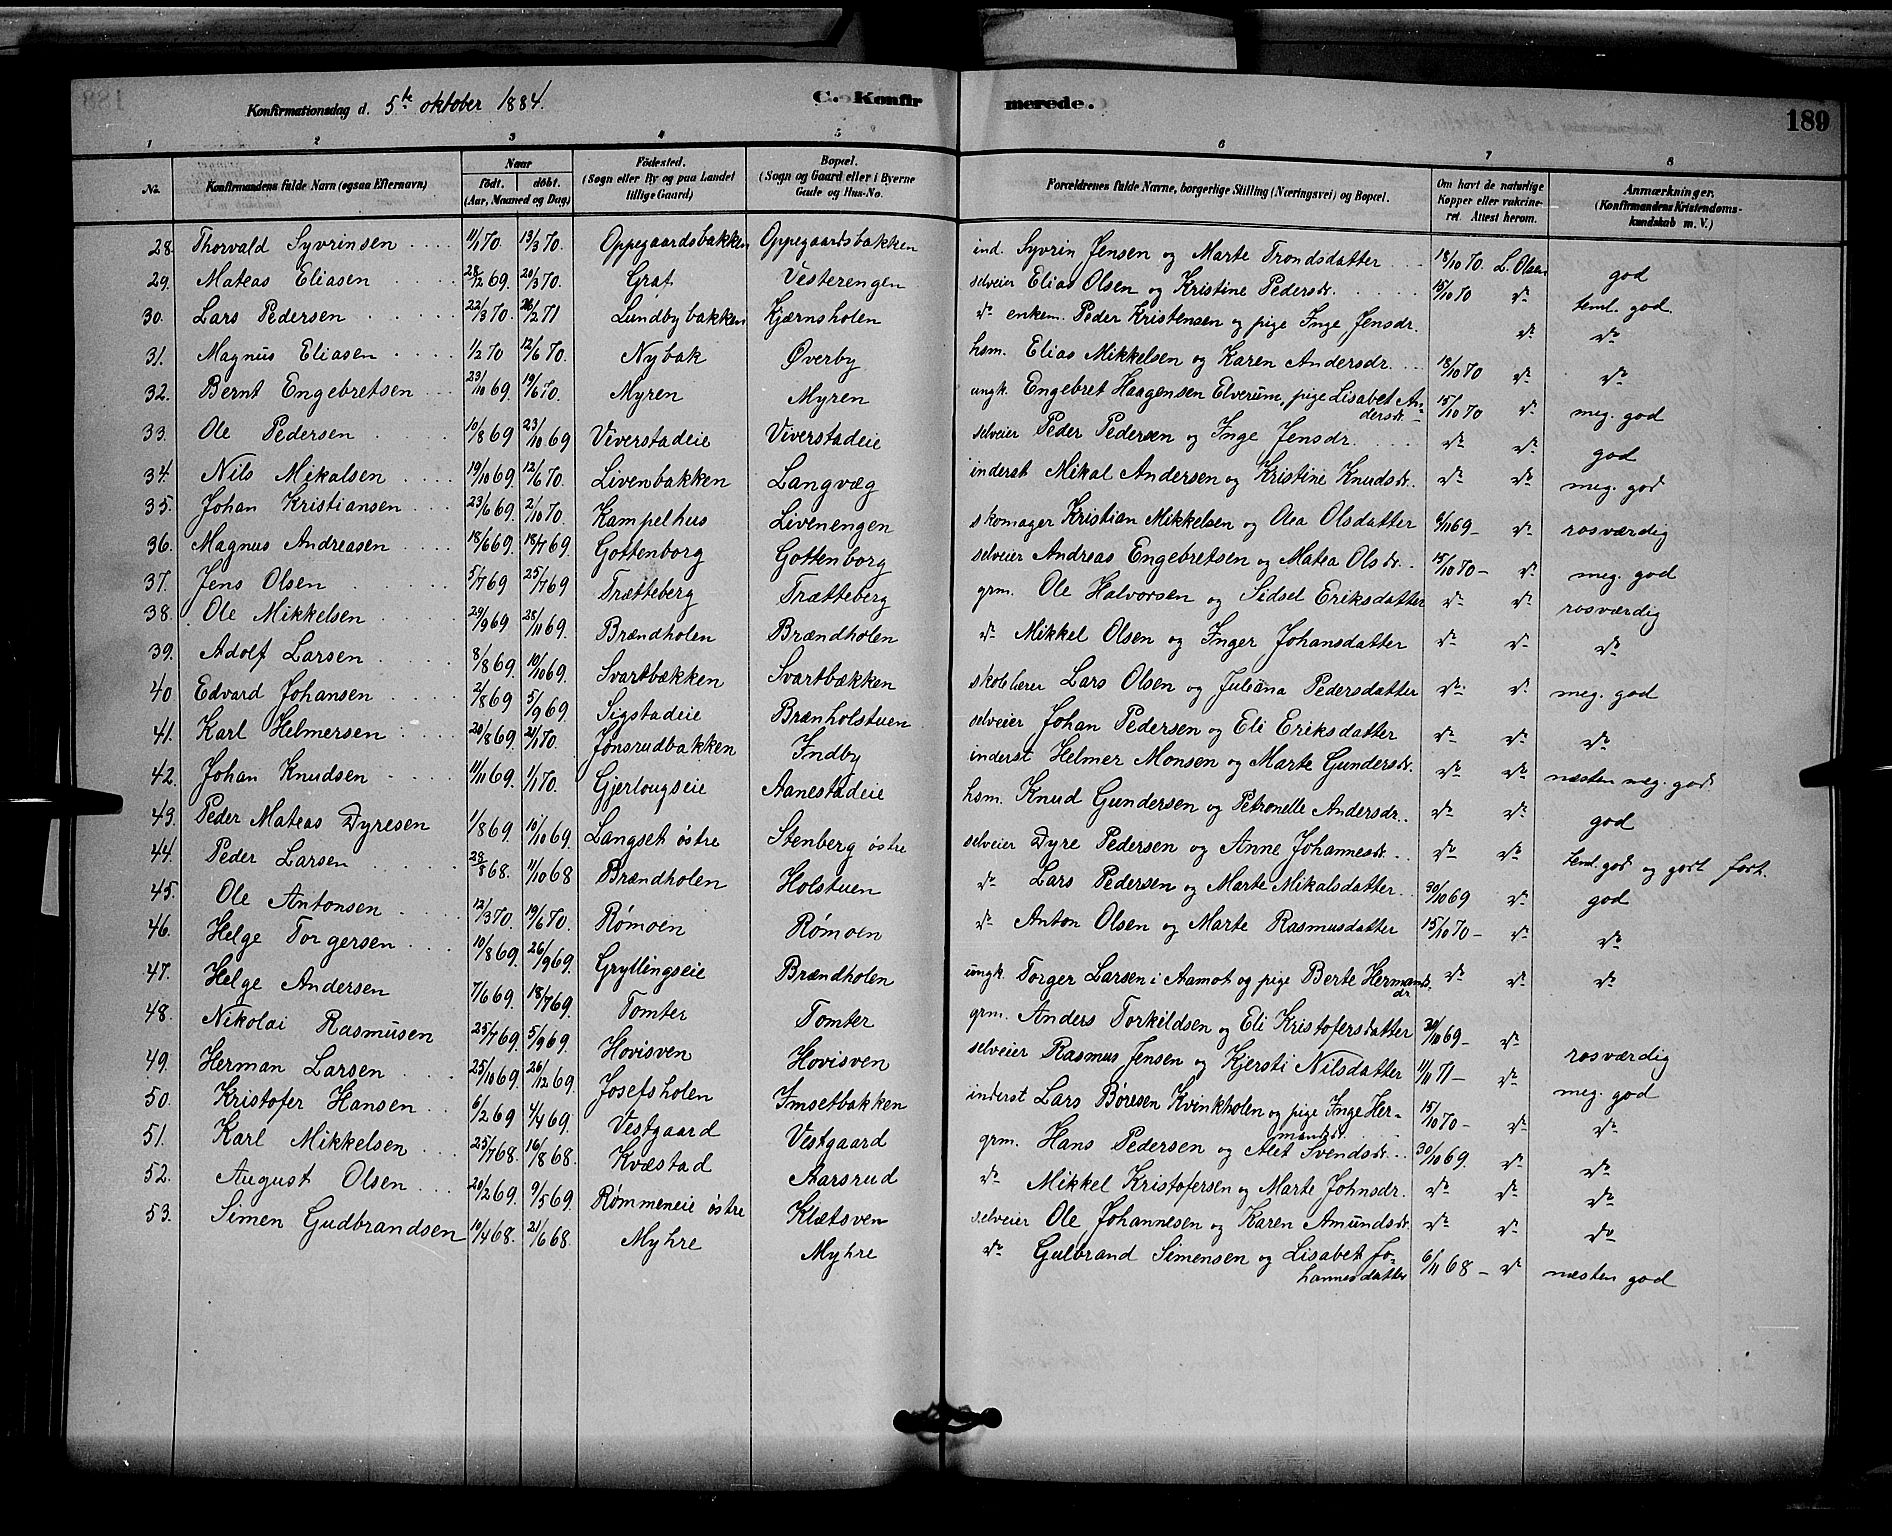 Konfirmationsdag d. 5te oktober 1884.
C. Konfirmerede.
189
1 2 3 4 5 6 7 8
No. Konfirmandens fulde Navn (ogsaa Efternavn) Naar födt. döbt. (Aar, Maaned og Dag) Födested. (Sogn eller By og paa Landet tillige Gaard) Bopæl. (Sogn og Gaard eller i Byerne Gade og Hus-No. Forældrenes fulde Navne, borgerlige Stilling (Næringsvei) og Bopæl. Om havt de naturlige Kopper eller vakcineret. Attest herom. Anmærkninger. (Konfirmandens Kristendomskundskab m. V.)
28. Thorvald Syvrinsen 11/1 70. 13/3 70. Oppegaardsbakken Oppegaardsbakken ind. Syvrin Jensen og Marte Trondsdatter 18/10 70. L. Olsen god
29. Mateas Eliasen 28/12 69. 20/3 70. Graf Vesterengen selveier Elias Olsen og Kristine Pedersdr. 15/10 70 do teml. god.
30. Lars Pedersen 22/3 70. 26/2 71 Lundbybakken Kjærnsholen do enkem. Peder Kristensen og pige Inge Jensdr. do do
31. Magnus Eliasen 1/2 70 12/6 70. Nybak Øverby hsm. Elias Mikkelsen og Karen Andersdr. 18/10 70 do do
32. Bernt Engebretsen 23/10 69. 19/6 70. Myren Myren ungk. Engebret Haagensen Elverum, pige Lisabet Andersdr. 15/10 70 do meg. god
33. Ole Pedersen 10/8 69 23/10 69 Viverstadeie Viverstadeie selveier Peder Pedersen og Inge Jensdr. do do god
34. Nils Mikalsen 19/10 69. 12/6 70. Livenbakken Langvæg inderst Mikal Andersen og Kristine Knudsdr. do do meg. god
35. Johan Kristiansen 23/6 69. 2/10 70. Kampelhus Livenengen skomager Kristian Mikkelsen og Olea Olsdatter 6/11 69 - do rosværdig
36. Magnus Andreasen 18/6 69. 18/7 69. Gottenborg Gottenborg selveier Andreas Engebretsen og Matea Olsdr. 15/10 70 - do meg. god
37. Jens Olsen 5/7 69 25/7 69 Trætteberg Trætteberg grm. Ole Halvorsen og Sidsel Eriksdatter do do rosværdig
38. Ole Mikkelsen 29/9 69 28/11 69. Brændholen Brændholen do Mikkel Olsen og Inger Johansdatter do do do
39. Adolf Larsen 8/8 69. 10/10 69. Svartbækken Svartbækken skolelærer Lars Olsen og Juliana Pedersdatter do do meg. god
40 Edvard Johansen 2/8 69 5/9 69. Sigstadeie Brænholstuen selveier Johan Pedersen og Eli Eriksdatter do do do
41. Karl Helmersen 20/8 69. 2/1 70. Jønsrudbakken Indby inderst Helmer Monsen og Marte Gundersdr. do do næsten meg. god
42. Johan Knudsen 11/11 69. 1/1 70. Gjerlougseie Aanestadeie hsm. Knud Gundersen og Petronelle Andersdr. do do god
43. Peder Mateas Dyresen 1/8 69. 10/10 69. Langset østre Stenberg østre selveier Dyre Pedersen og Anne Johannesdr. do do teml. god og godt forh.
44. Peder Larsen 28/8 68. 11/10 68 Brændholen Holstuen do Lars Pedersen og Marte Mikalsdatter 30/10 69 do god
45. Ole Antonsen 12/3 70. 19/6 70. Rømoen Rømoen do Anton Olsen og Marte Rasmusdatter 15/10 70 - do do
46. Helge Torgersen 10/8 69. 26/9 69. Gryllingseie Brændholen ungk. Torger Larsen i Aamot og pige Berte Hermansdr. do do do
47. Helge Andersen 7/6 69. 18/7 69. Tomter Tomter grm. Anders Torkildsen og Eli Kristofersdatter 30/10 69 - do rosværdig
48. Nikolai Rasmusen 25/7 69. 5/9 69. Hovisven Hovisven selveier Rasmus Jensen og Kjersti Nilsdatter 11/11 71 - do meg. god
49. Herman Larsen 25/10 69. 26/12 69. Josefsholen Imsetbakken inderst Lars Børesen Kvinkholen og pige Inge Hermansdr. 15/10 70 - do do
50. Kristofer Hansen 6/2 69 4/4 69. Vestgaard Vestgaard grm. Hans Pedersen og Alet Svendsdr. 30/10 69. do do
51. Karl Mikkelsen 25/7 68. 16/8 68. Kvæstad Aarsrud do Mikkel Kristofersen og Marte Johnsdr. do do do
52. August Olsen 20/2 69. 9/5 69. Rømmeneie østre Klætsven selveier Ole Johannesen og Karen Amundsdr. do do do
53. Simen Gudbrandsen 10/4 68. 21/6 68. Myhre Myhre do Gulbrand Simensen og Lisabet Johannesdatter 6/11 68 - do næsten god